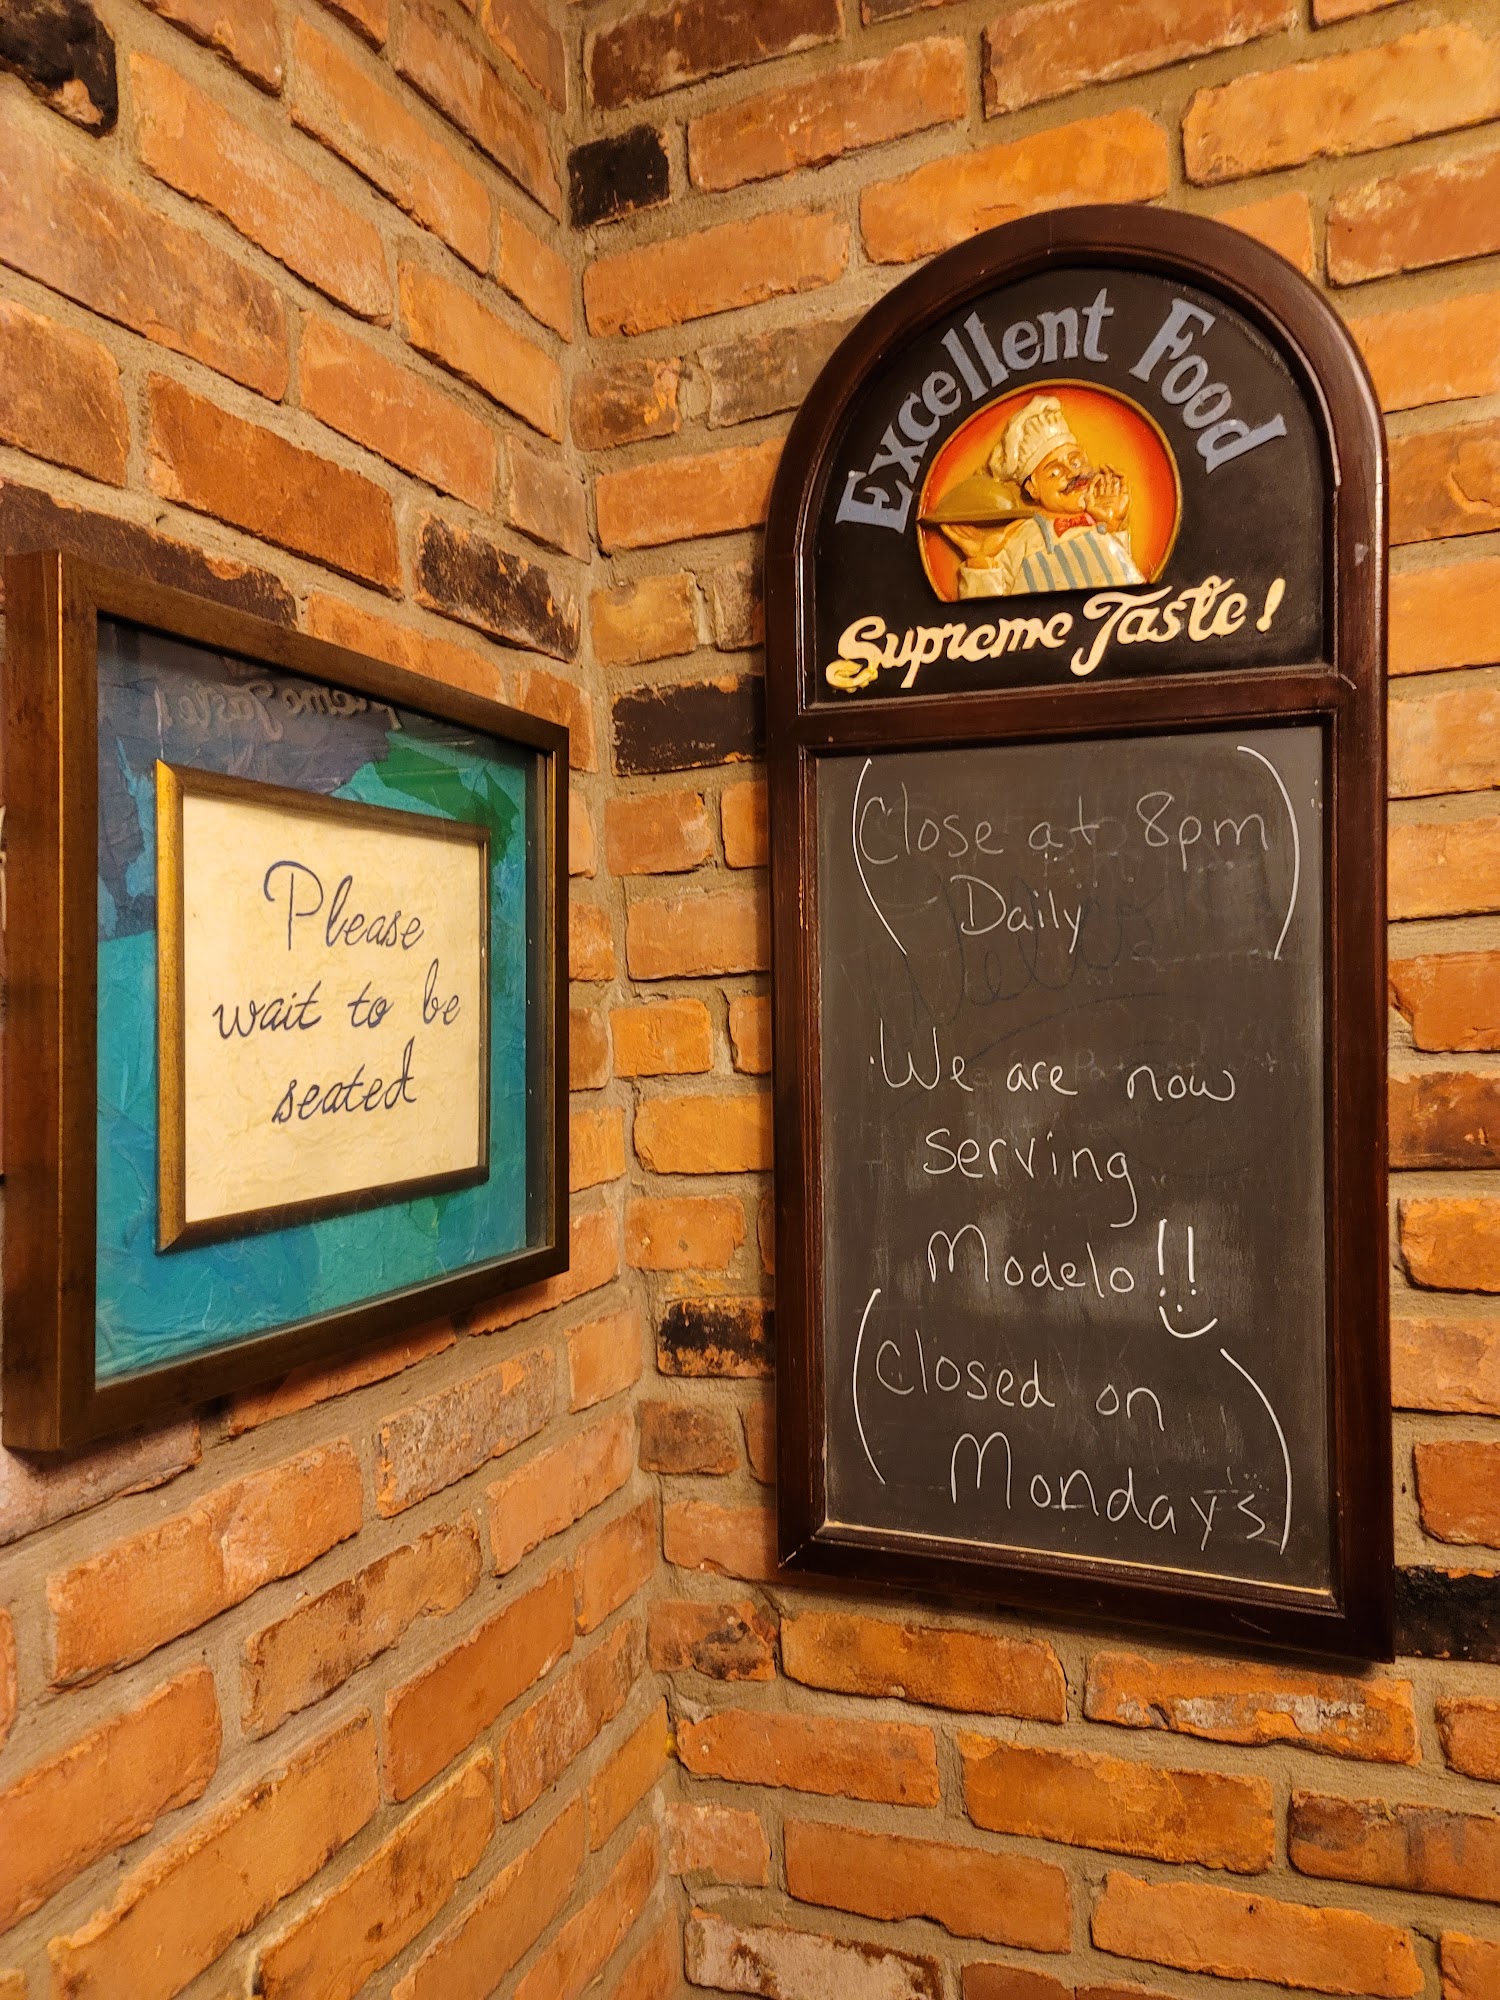 Please
wait to be
seated
Excellent Food
Supreme Taste!
(Close at 8pm
Daily)
· We are now
serving
Modelo!!
:)
(Closed on
Mondays)